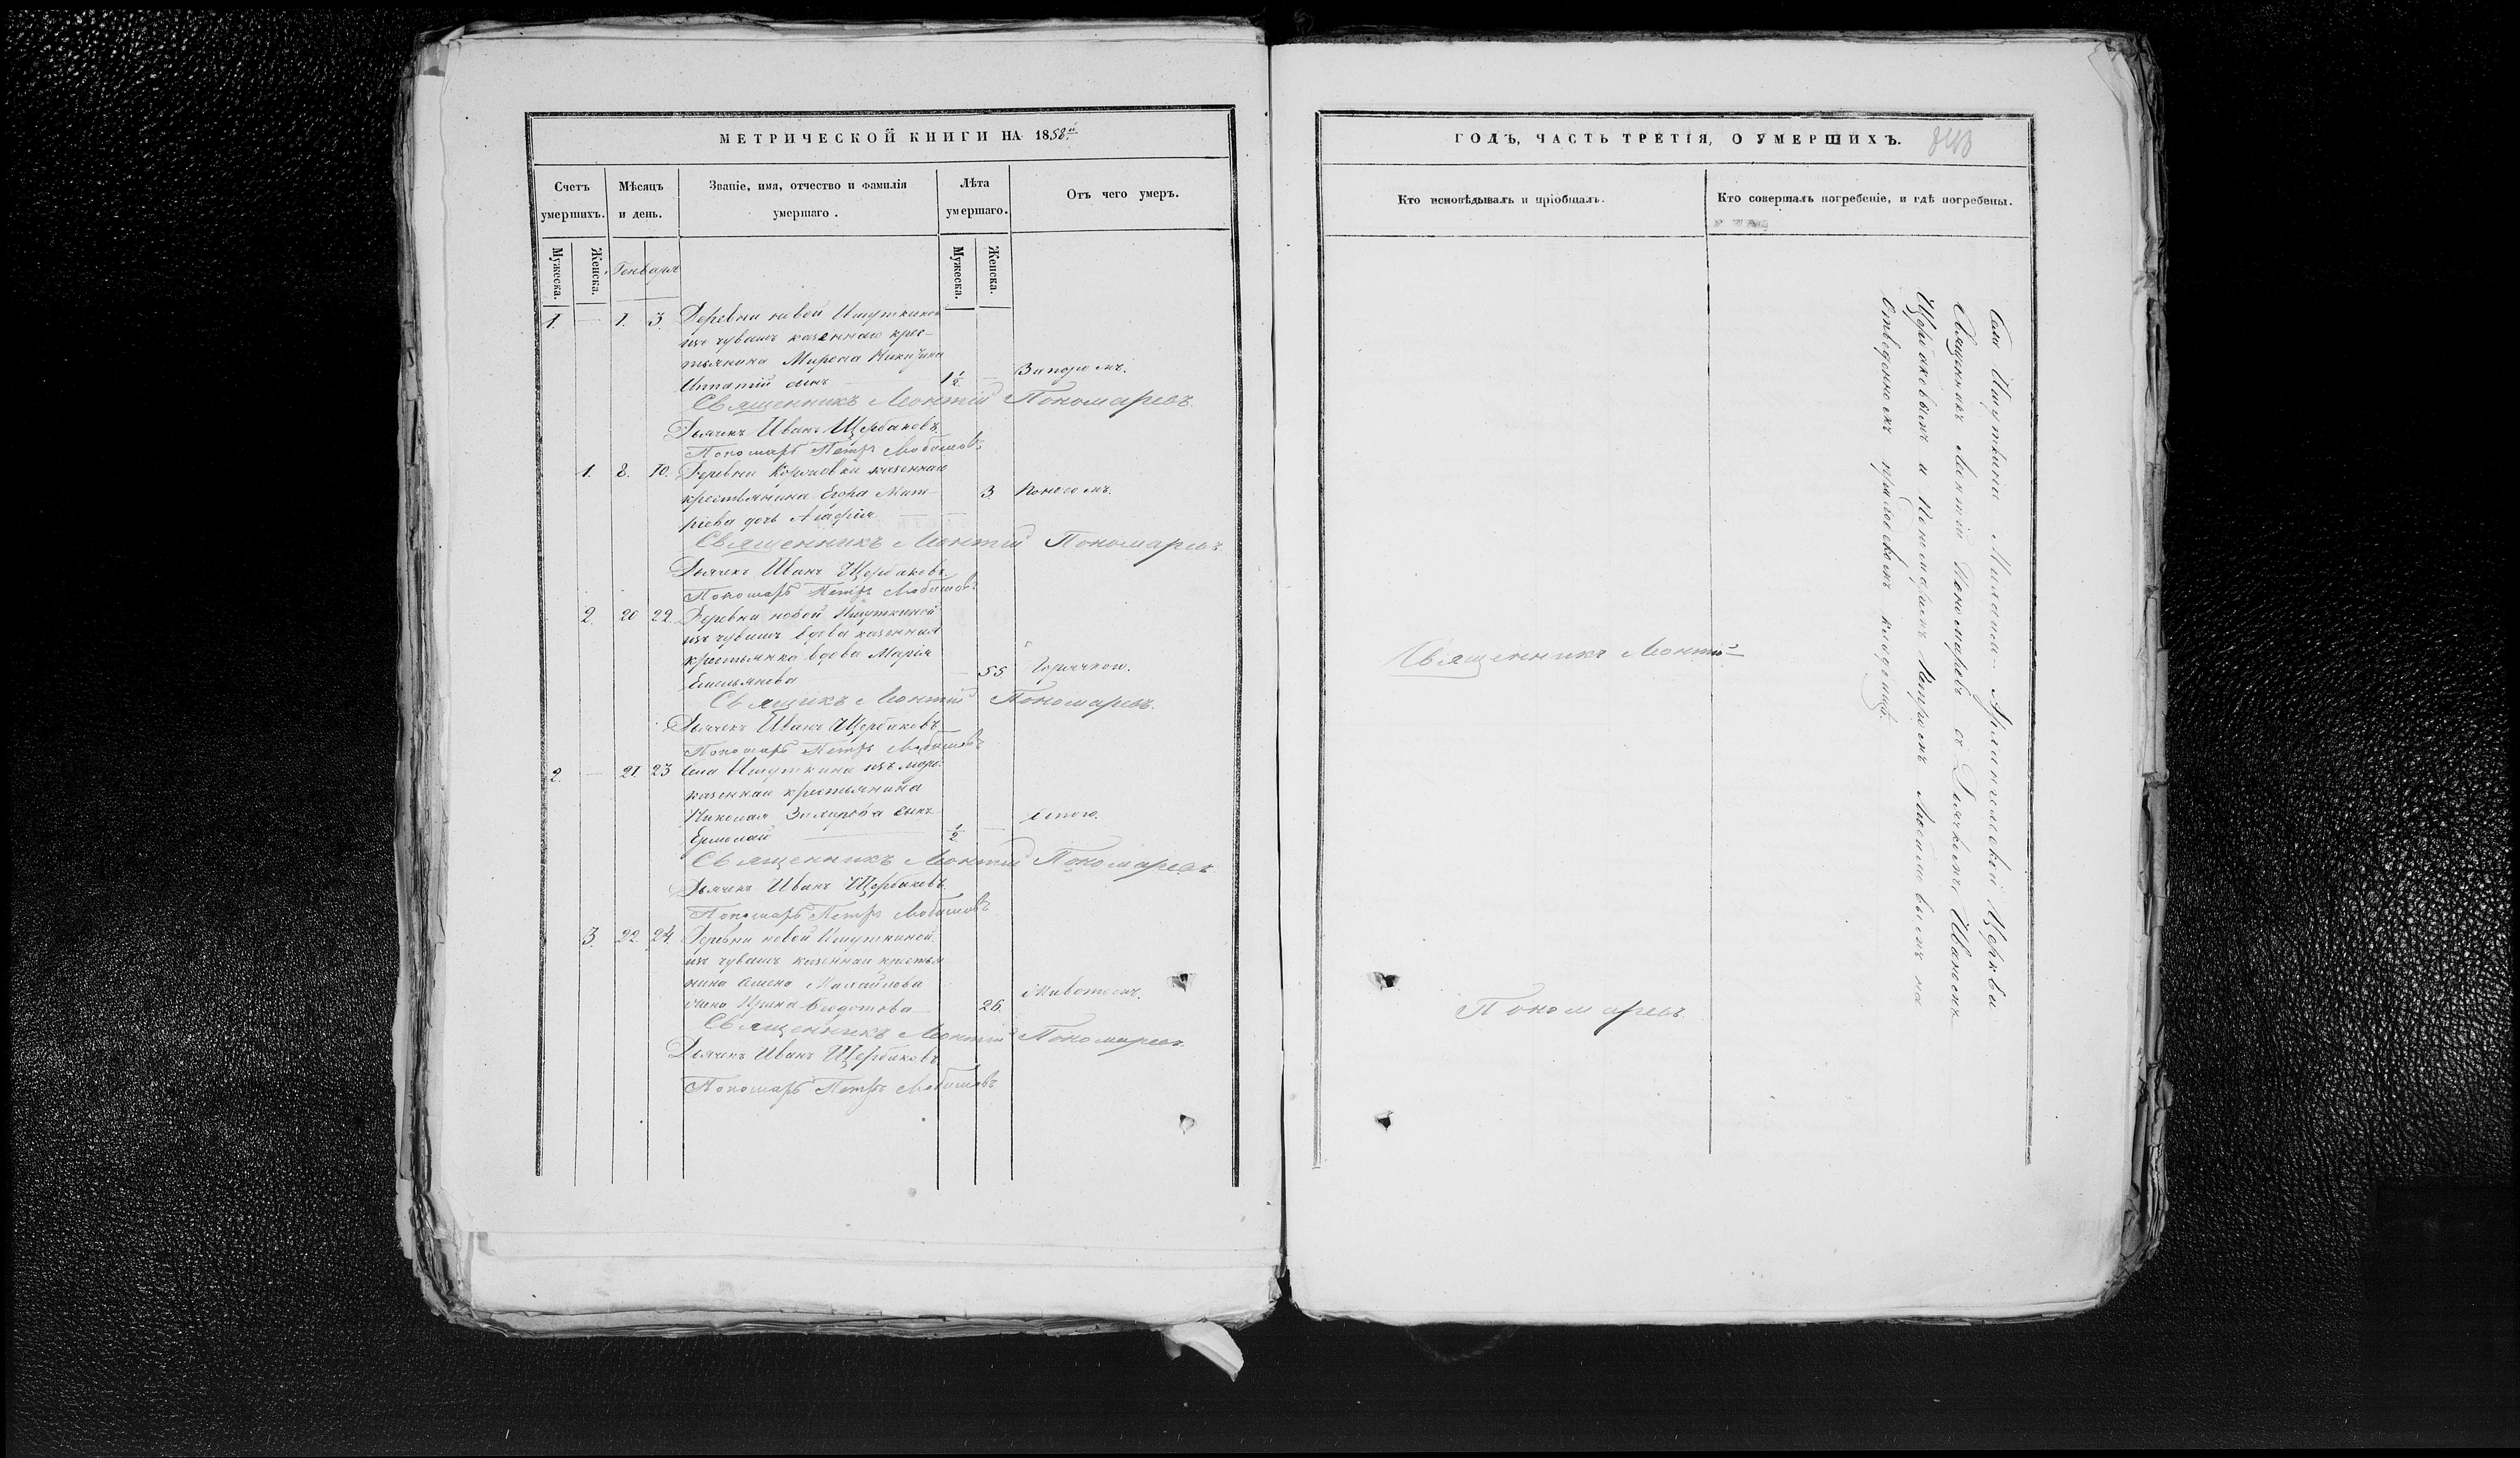 МЕТРИЧЕСКОЙ КНИГИ НА 1858й
Счетъ умершихъ.
Мѣсяцъ и день.
Званіе, имя, отчество и фамилія умершаго.
Лѣта умершаго.
Отъ чего умеръ.
Мужеска.
Женска.
Генваря
Мужеска.
Женска.
1. — 1. 3. Деревни новой Ишуткиной
изъ чувашъ казеннаго крес-
тьянина Мирона Никитина
Ипатій сынъ 1 1/2 — Запоромъ.
Священникъ Леонтій Пономаревъ.
Дьячекъ Иванъ Щербаковъ.
Пономарь Петръ Любимовъ.
1. 8. 10. Деревни казеннаго
крестьянина Егора Дмит-
ріева дочь Агафія 3. Поносомъ.
Священникъ Леонтій Пономаревъ.
Дьячекъ Иванъ Щербаковъ.
Пономарь Петръ Любимовъ.
2. 20 22. Деревни новой Ишуткиной
изъ чувашъ вдова казенная
крестьянка вдова Марія
Емельянова 55. Горячкою.
Священникъ Леонтій Пономаревъ.
Дьячекъ Иванъ Щербаковъ.
Пономарь Петръ Любимовъ
2. — 21. 23 Села Ишуткина изъ морд.
казеннаго крестьянина
Николая сынъ
Ермолай 1/2 —
Священникъ Леонтій Пономаревъ
Дьячекъ Иванъ Щербаковъ.
Пономарь Петръ Любимовъ
3. 22. 24. Деревни новой Ишуткиной
изъ чувашъ казеннаго крестья
нина Семена
жена Ирина Ѳедотова 26. Животомъ.
Священникъ Леонтій Пономаревъ.
Дьячекъ Иванъ Щербаковъ
Пономарь Петръ Любимовъ
ГОДЪ, ЧАСТЬ ТРЕТІЯ, О УМЕРШИХЪ.
Кто исповѣдывалъ и пріобщалъ.
Кто совершалъ погребеніе, и гдѣ погребены.
Священникъ Леонтій
Пономаревъ.
Села Ишуткина Михаило-Архангельской Церкви
Священникъ Леонтій Пономаревъ съ Дьячкомъ Иваномъ
Щербаковымъ и Пономаремъ Петромъ Любимовымъ на
отведенномъ приходскомъ кладбищѣ.